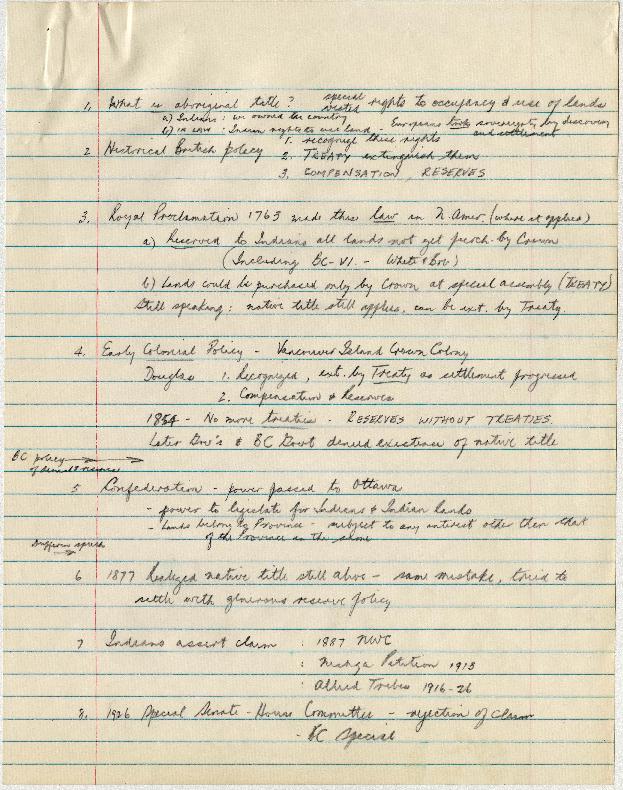 1. What is aboriginal title? special vested rights to occupancy & use of lands
a) Indians: we owned the country
b) in law: Indian rights to use land - Europeans took sovereignty by discovery and settlement
2 Historical British policy 1. recognize these rights
2. TREATY extinguish them
3. COMPENSATION, RESERVES
3. Royal Proclamation 1763 made this law in N. Amer. (where it applies)
a) Reserved to Indians all lands not yet purch. by Crown
(Including BC-VI. - White & Bob)
b) Lands could be purchased only by Crown at special assembly (TREATY)
Still speaking: native title still applies, can be ext. by Treaty.
4. Early Colonial Policy - Vancouver Island Crown Colony
Douglas 1. Recognized, ext. by Treaty as settlement progressed
2. Compensation & Reserves
1854 - No more treaties - RESERVES WITHOUT TREATIES.
Later Gov's & BC Govt denied existence of native title
BC policy
of denial & reserves
5 Confederation - power passed to Ottawa
- power to legislate for Indians & Indian lands
- Lands belong to Province - subject to any interest other than that
of the Province in the same
Dufferin speech
6 1877 Realized native title still alive - same mistake, tried to
settle with generous reserve policy
7 Indians assert claim : 1887 NWC
: Nishga Petition 1913
: Allied Tribes 1916-26
8. 1926 Special Senate-House Committee - rejection of claim
- BC Special